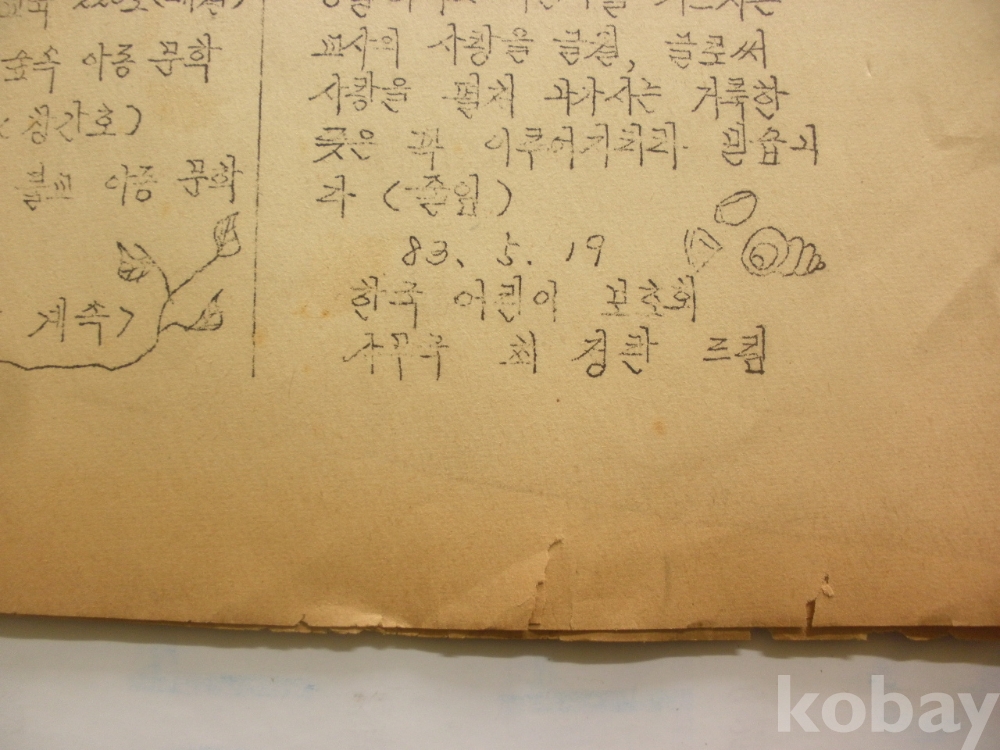 아동 문학
창간호)
불교 아동 문학
계속>
교사의 사랑을 글로써
사랑을 펼쳐 나가시는 거룩한
뜻은 꼭 이루어지리라 믿습니
라 (좀임)
83. 5. 19
한국 어린이 보호회
사무국 최 경란 드림
kobay